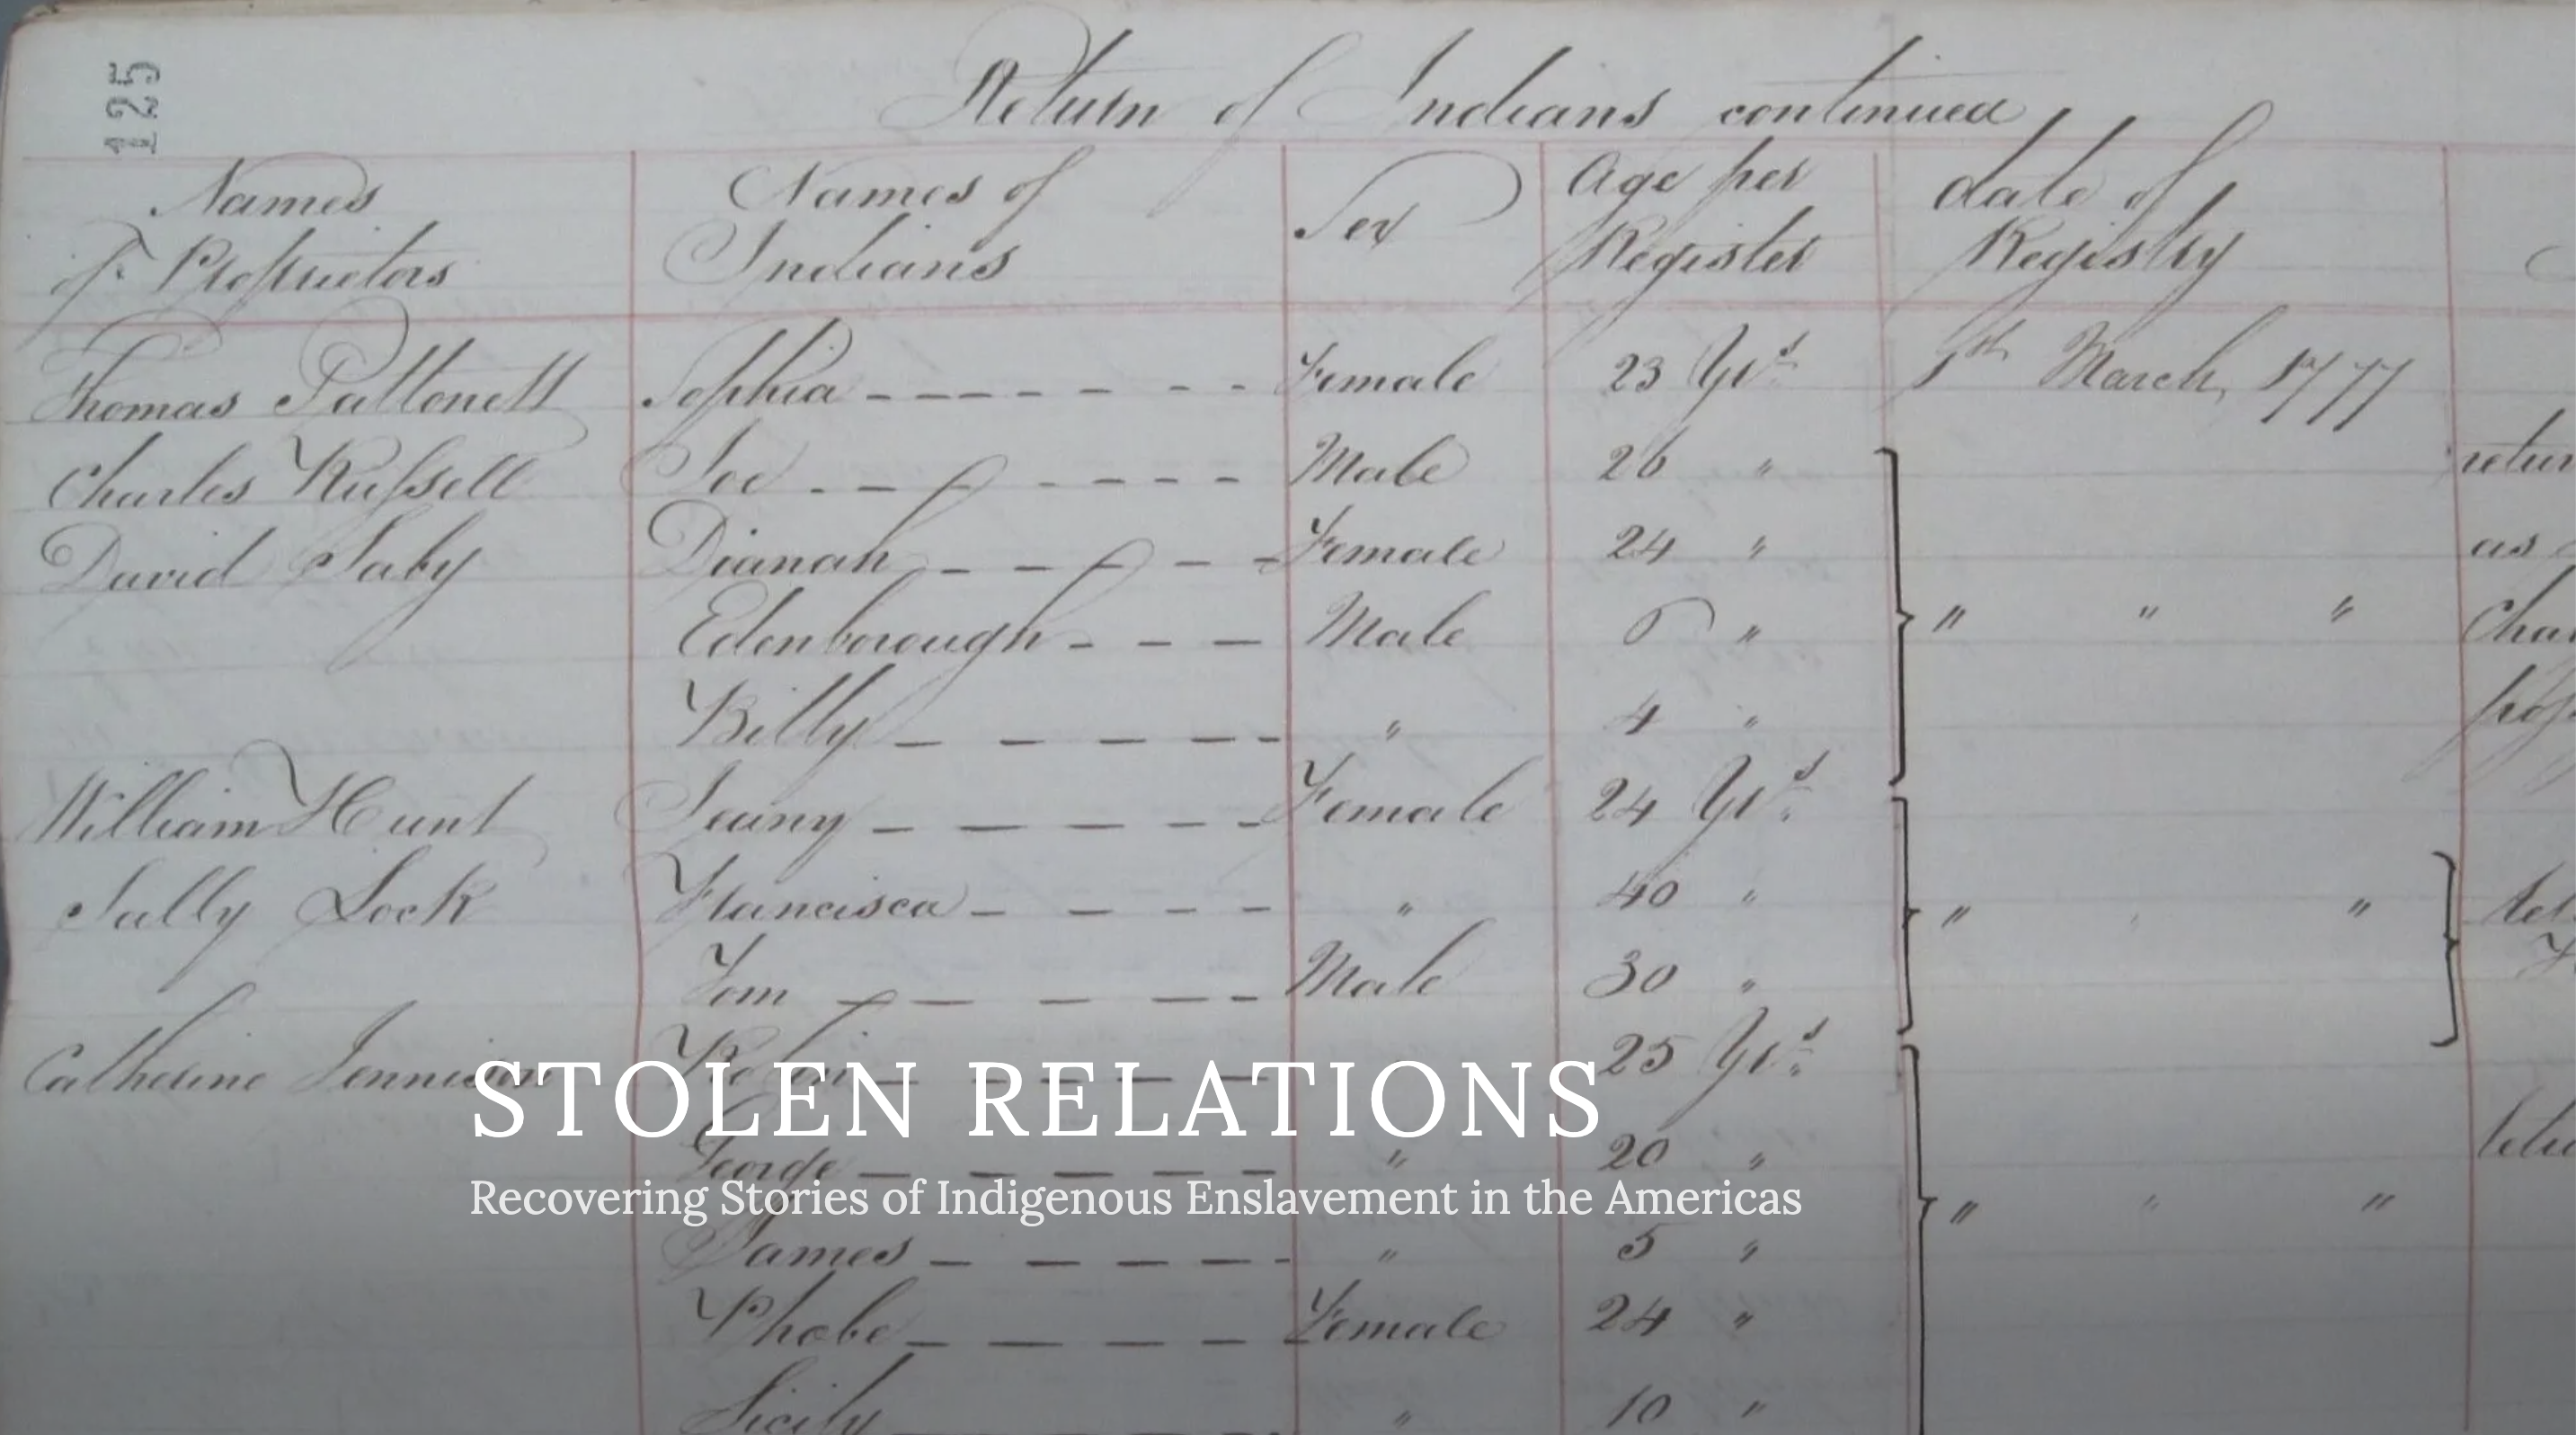 125
Return of Indians continued
Names of Proprietors | Names of Indians | Sex | Age per Register | date of Registry
Thomas Pattonett | Sophia | Female | 23 Yrs | 1st March, 1777
Charles Russell | Joe | Male | 26 " | retur
David Saby | Dianah | Female | 24 " | as
Edenborough | Male | 6 " | " " " | Cha
Billy | " | 4 " | prop
William Hunt | Jeany | Female | 24 Yrs
Sally Lock | Francisca | " | 40 " | " "
Tom | Male | 30 "
Catherine Jennison | 25 Yrs
STOLEN RELATIONS
George | " | 20 "
Recovering Stories of Indigenous Enslavement in the Americas
James | " | 5 " | " " "
Phobe | Female | 24 "
Sicily | " | 10 "